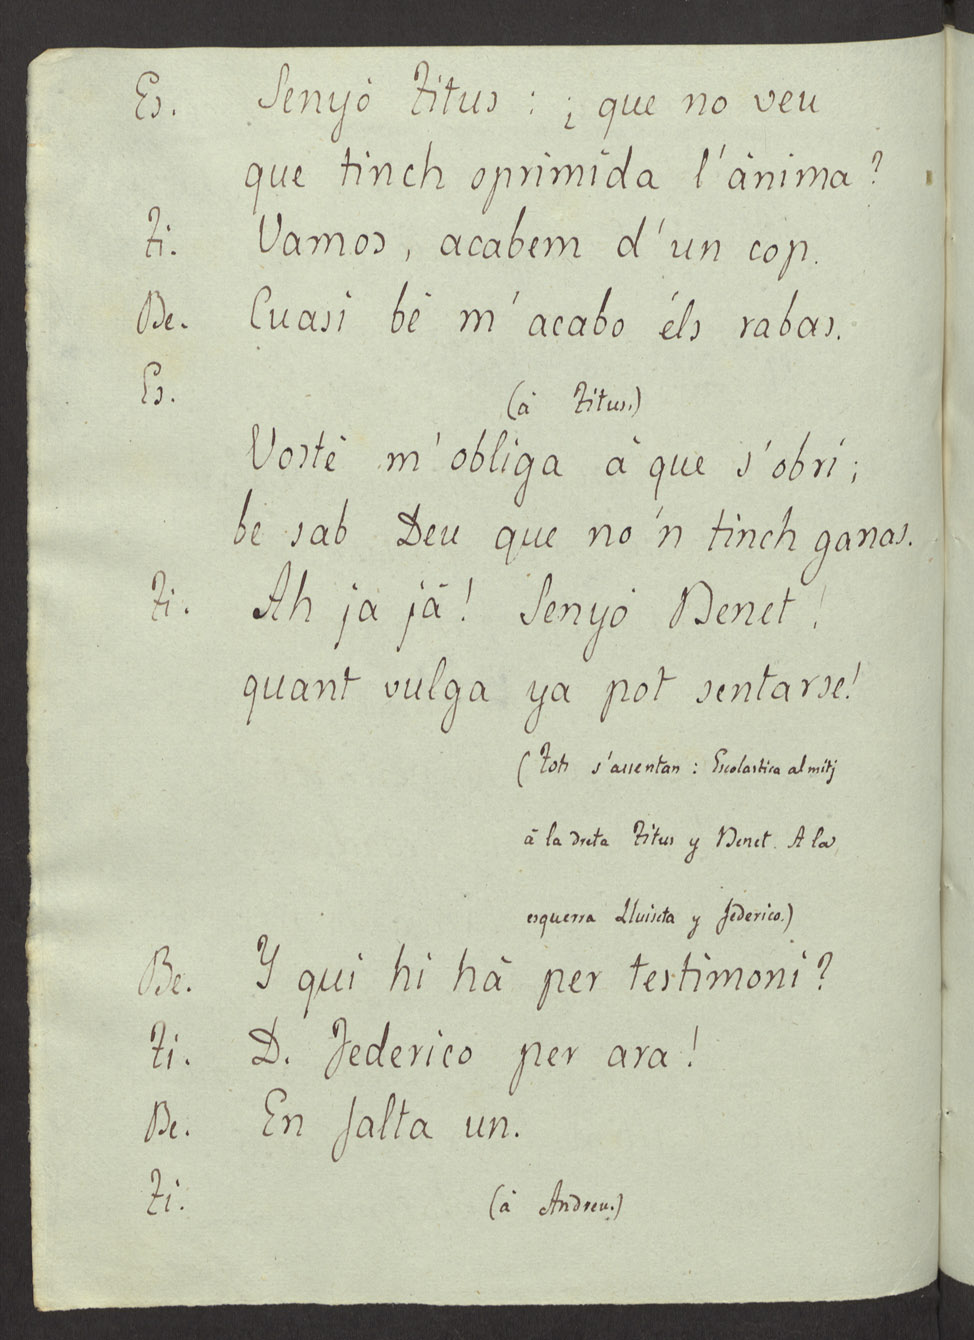 Es. Senyó Titus : ¿ que no veu
que tinch oprimida l'ánima?
Ti. Vamos, acabem d'un cop.
Be. Cuasi bé m'acabo éls rabas.
Es. (á Titus.)
Vosté m'obliga á que s'obri;
be sab Deu que no'n tinch ganas.
Ti. Ah ja já! Senyó Benet!
quant vulga ya pot sentarse!
(Tots s'assentan : Escolastica al mitj
á la dreta Titus y Benet. A la
esquerra Lluiseta y Federico.)
Be. Y qui hi há per testimoni?
Ti. D. Federico per ara!
Be. En falta un.
Ti. (á Andreu.)